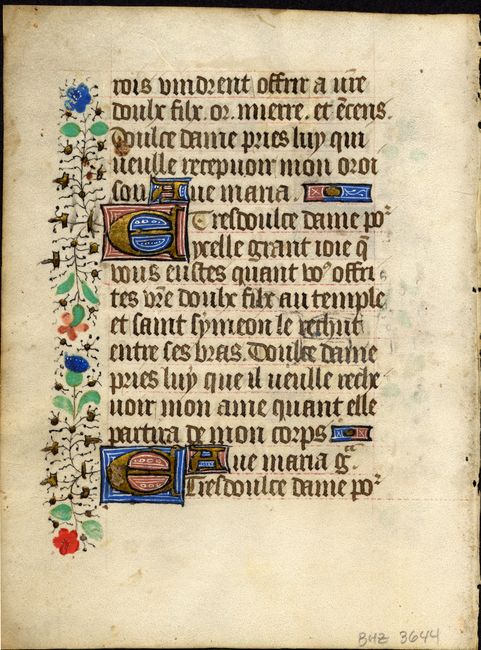 rois vindrent offrir a vr̃e
doulx filx. or. mierre. et ẽcens.
Doulce dame pries luy qui
ueulle recepuoir mon oroi
son Aue maria.
E Tresdoulce dame po
ycelle grant ioie q̃
vous eustes quant voꝰ offri
tes vr̃e doulx filx au temple
et saint symeon le rechut
entre ses bras. Doulce dame
pries luy que il ueulle reche
uoir mon ame quant elle
partira de mon corps
Aue maria gᵃ.
E Tresdoulce dame po
BHZ 3644